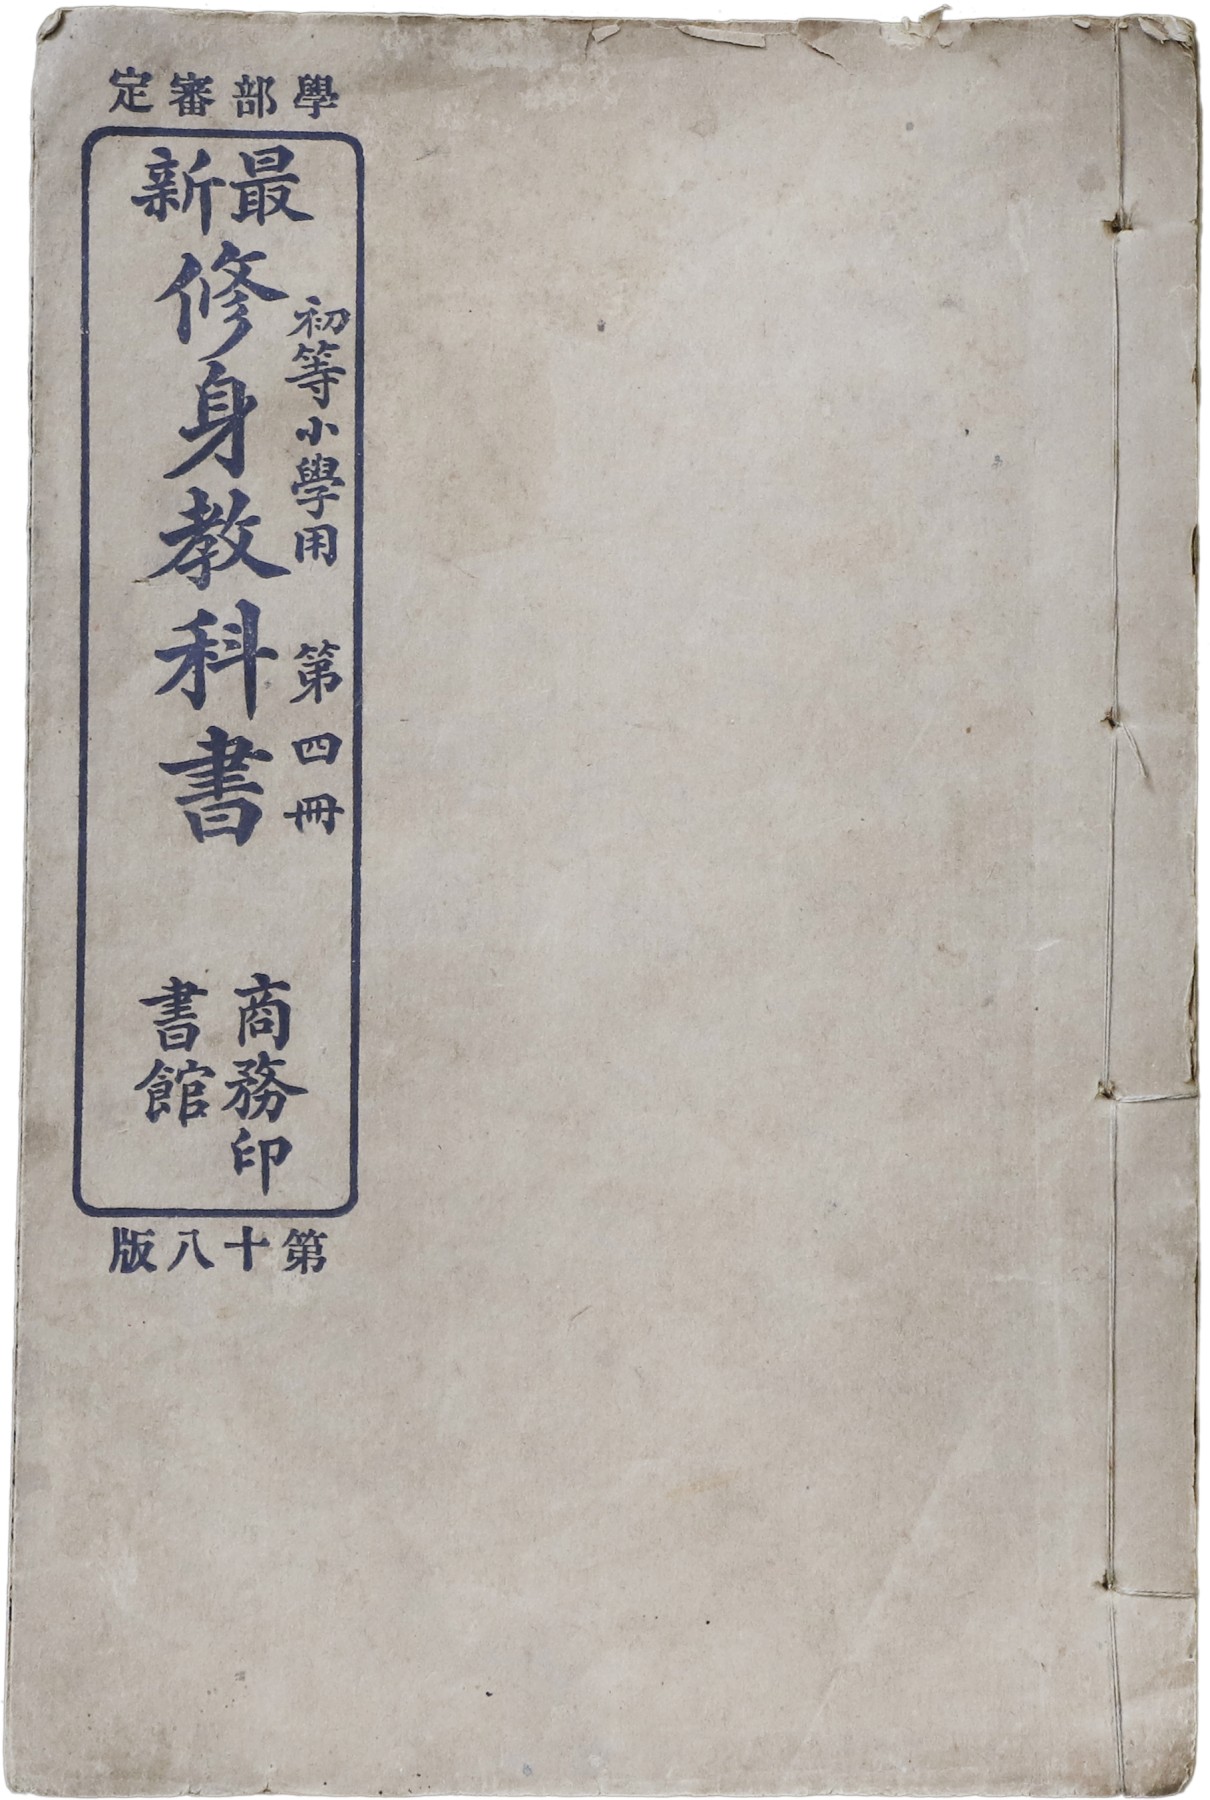 學部審定
最新
修身教科書
初等小學用 第四冊
商務印
書館
第十八版